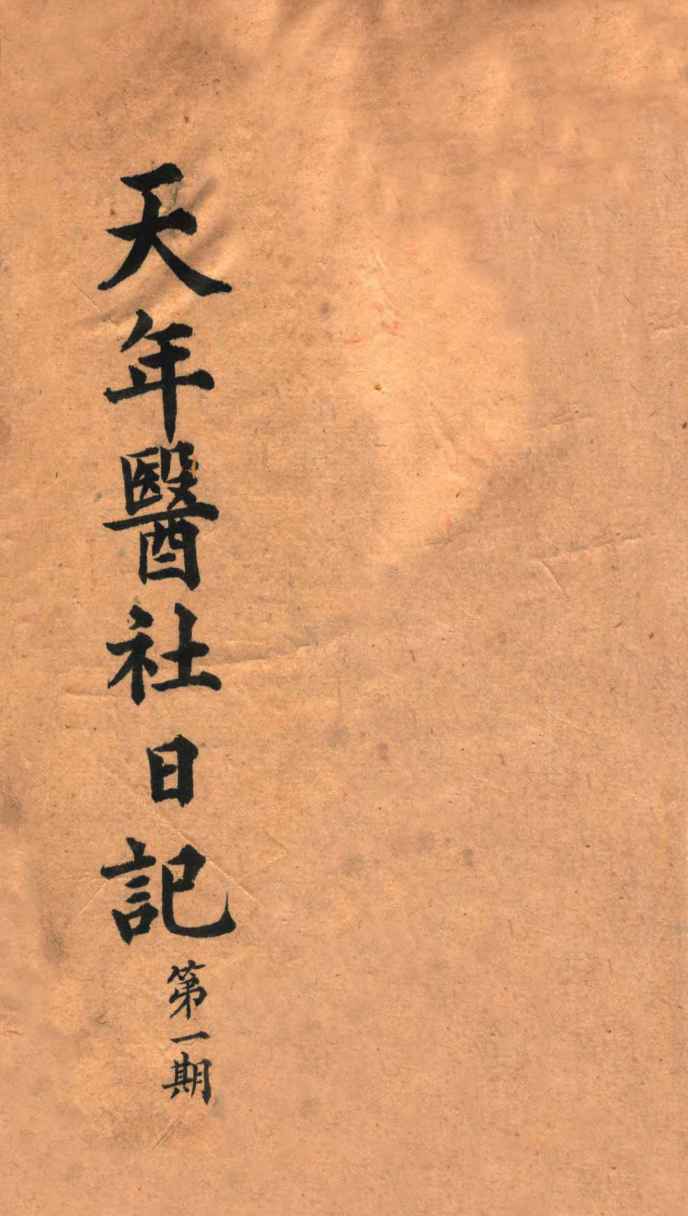 天年醫社日記
第一期